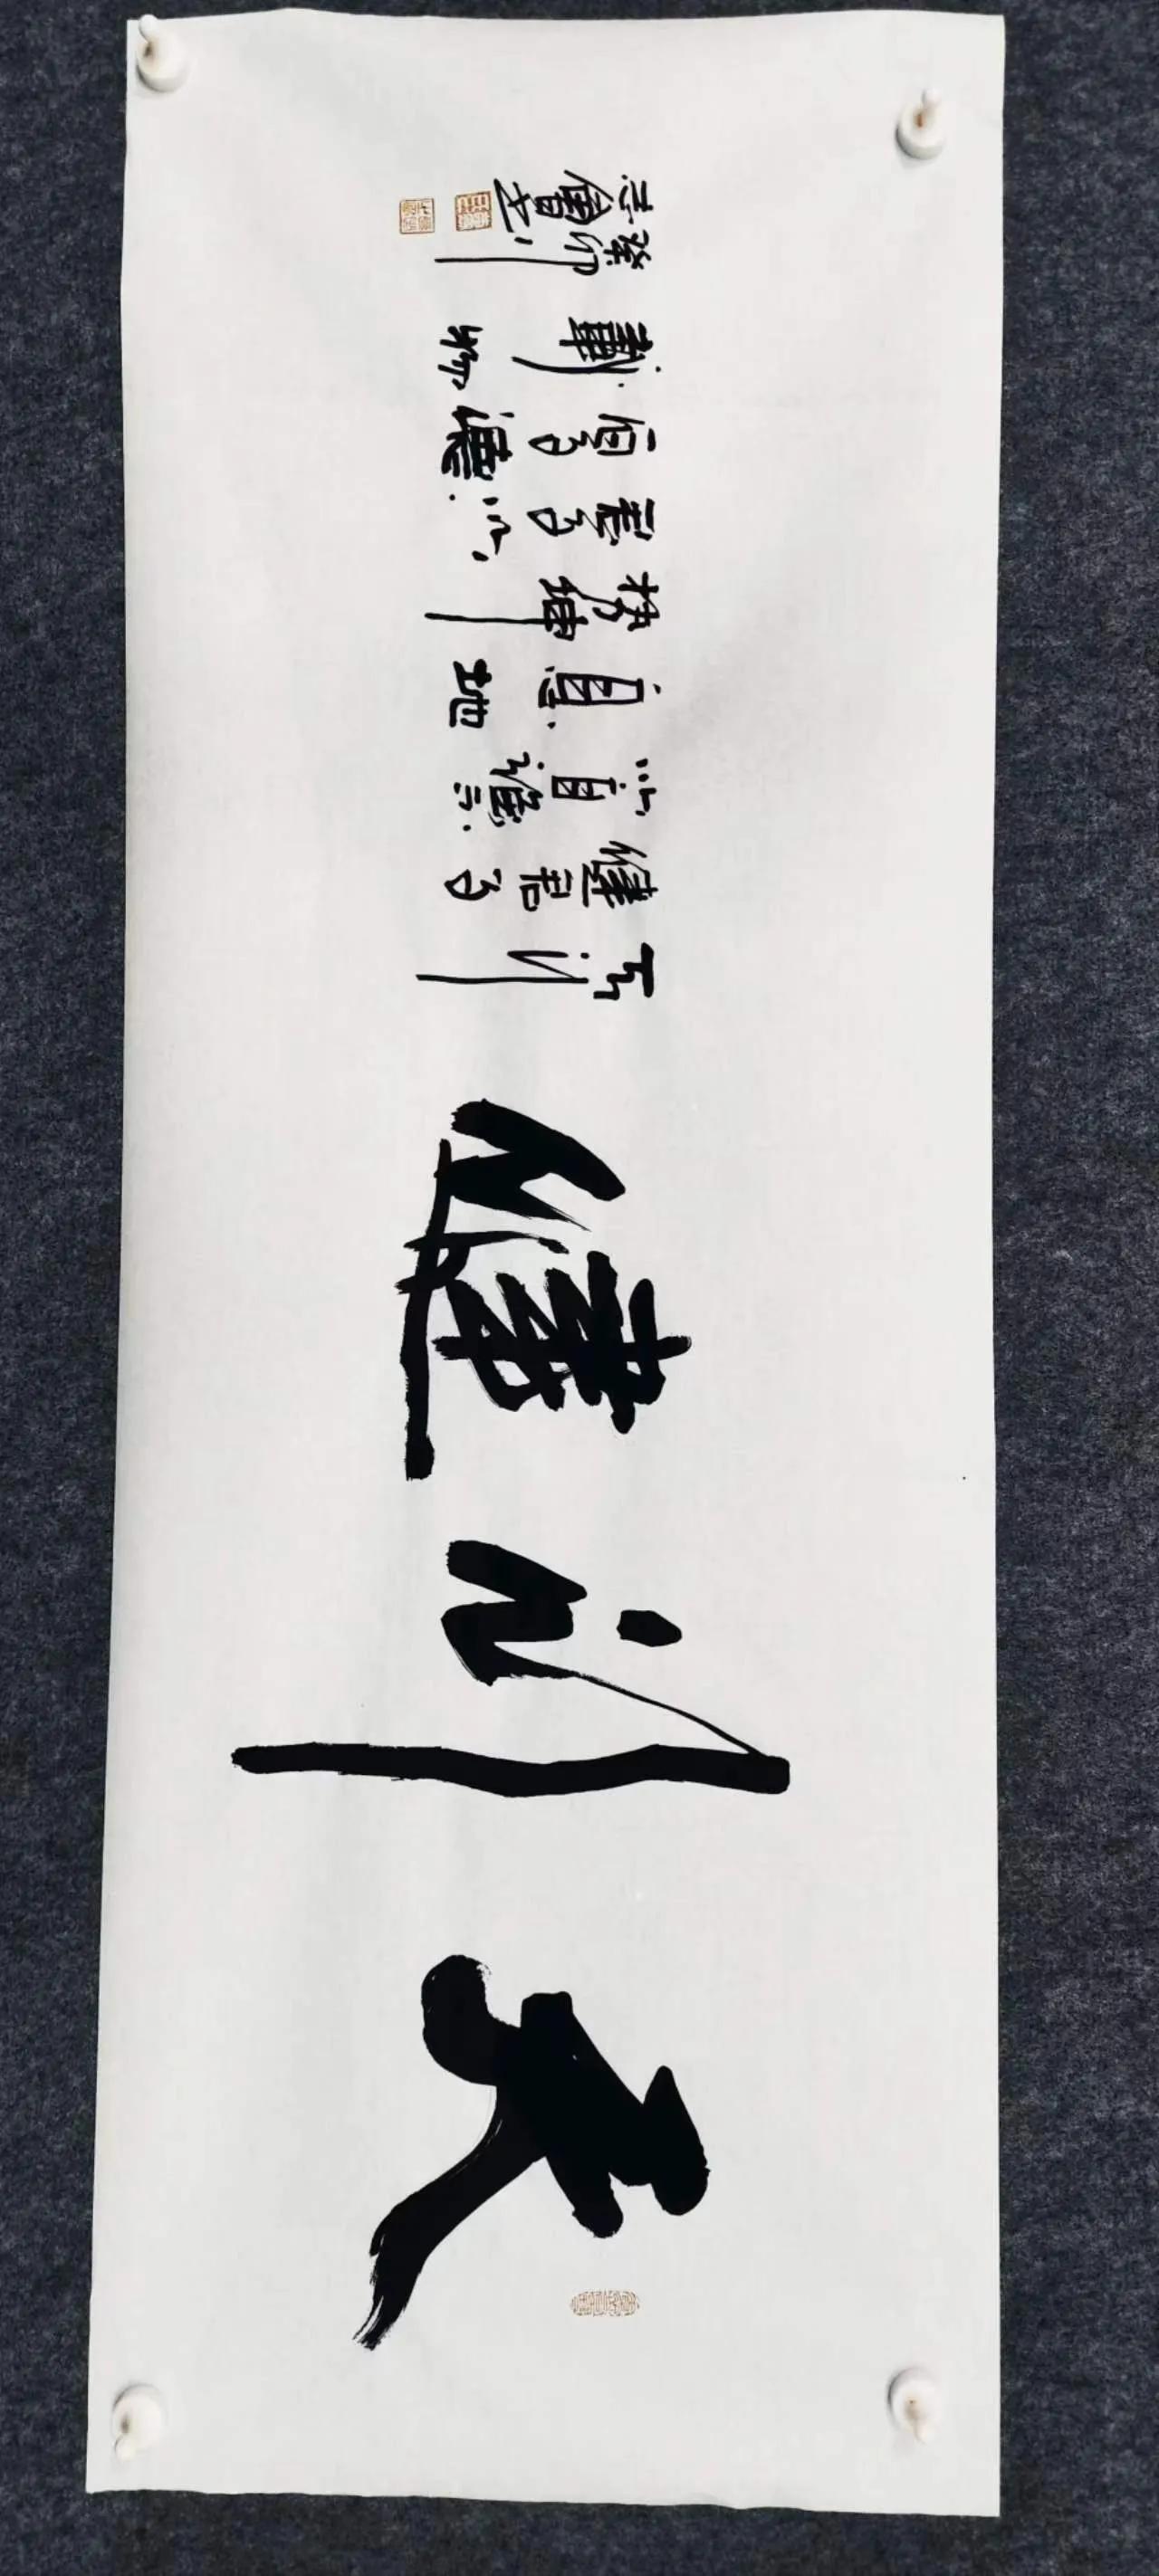 天行健
天行
健君子
以自強不
息地
势坤
君子以
厚德
載物
癸卯